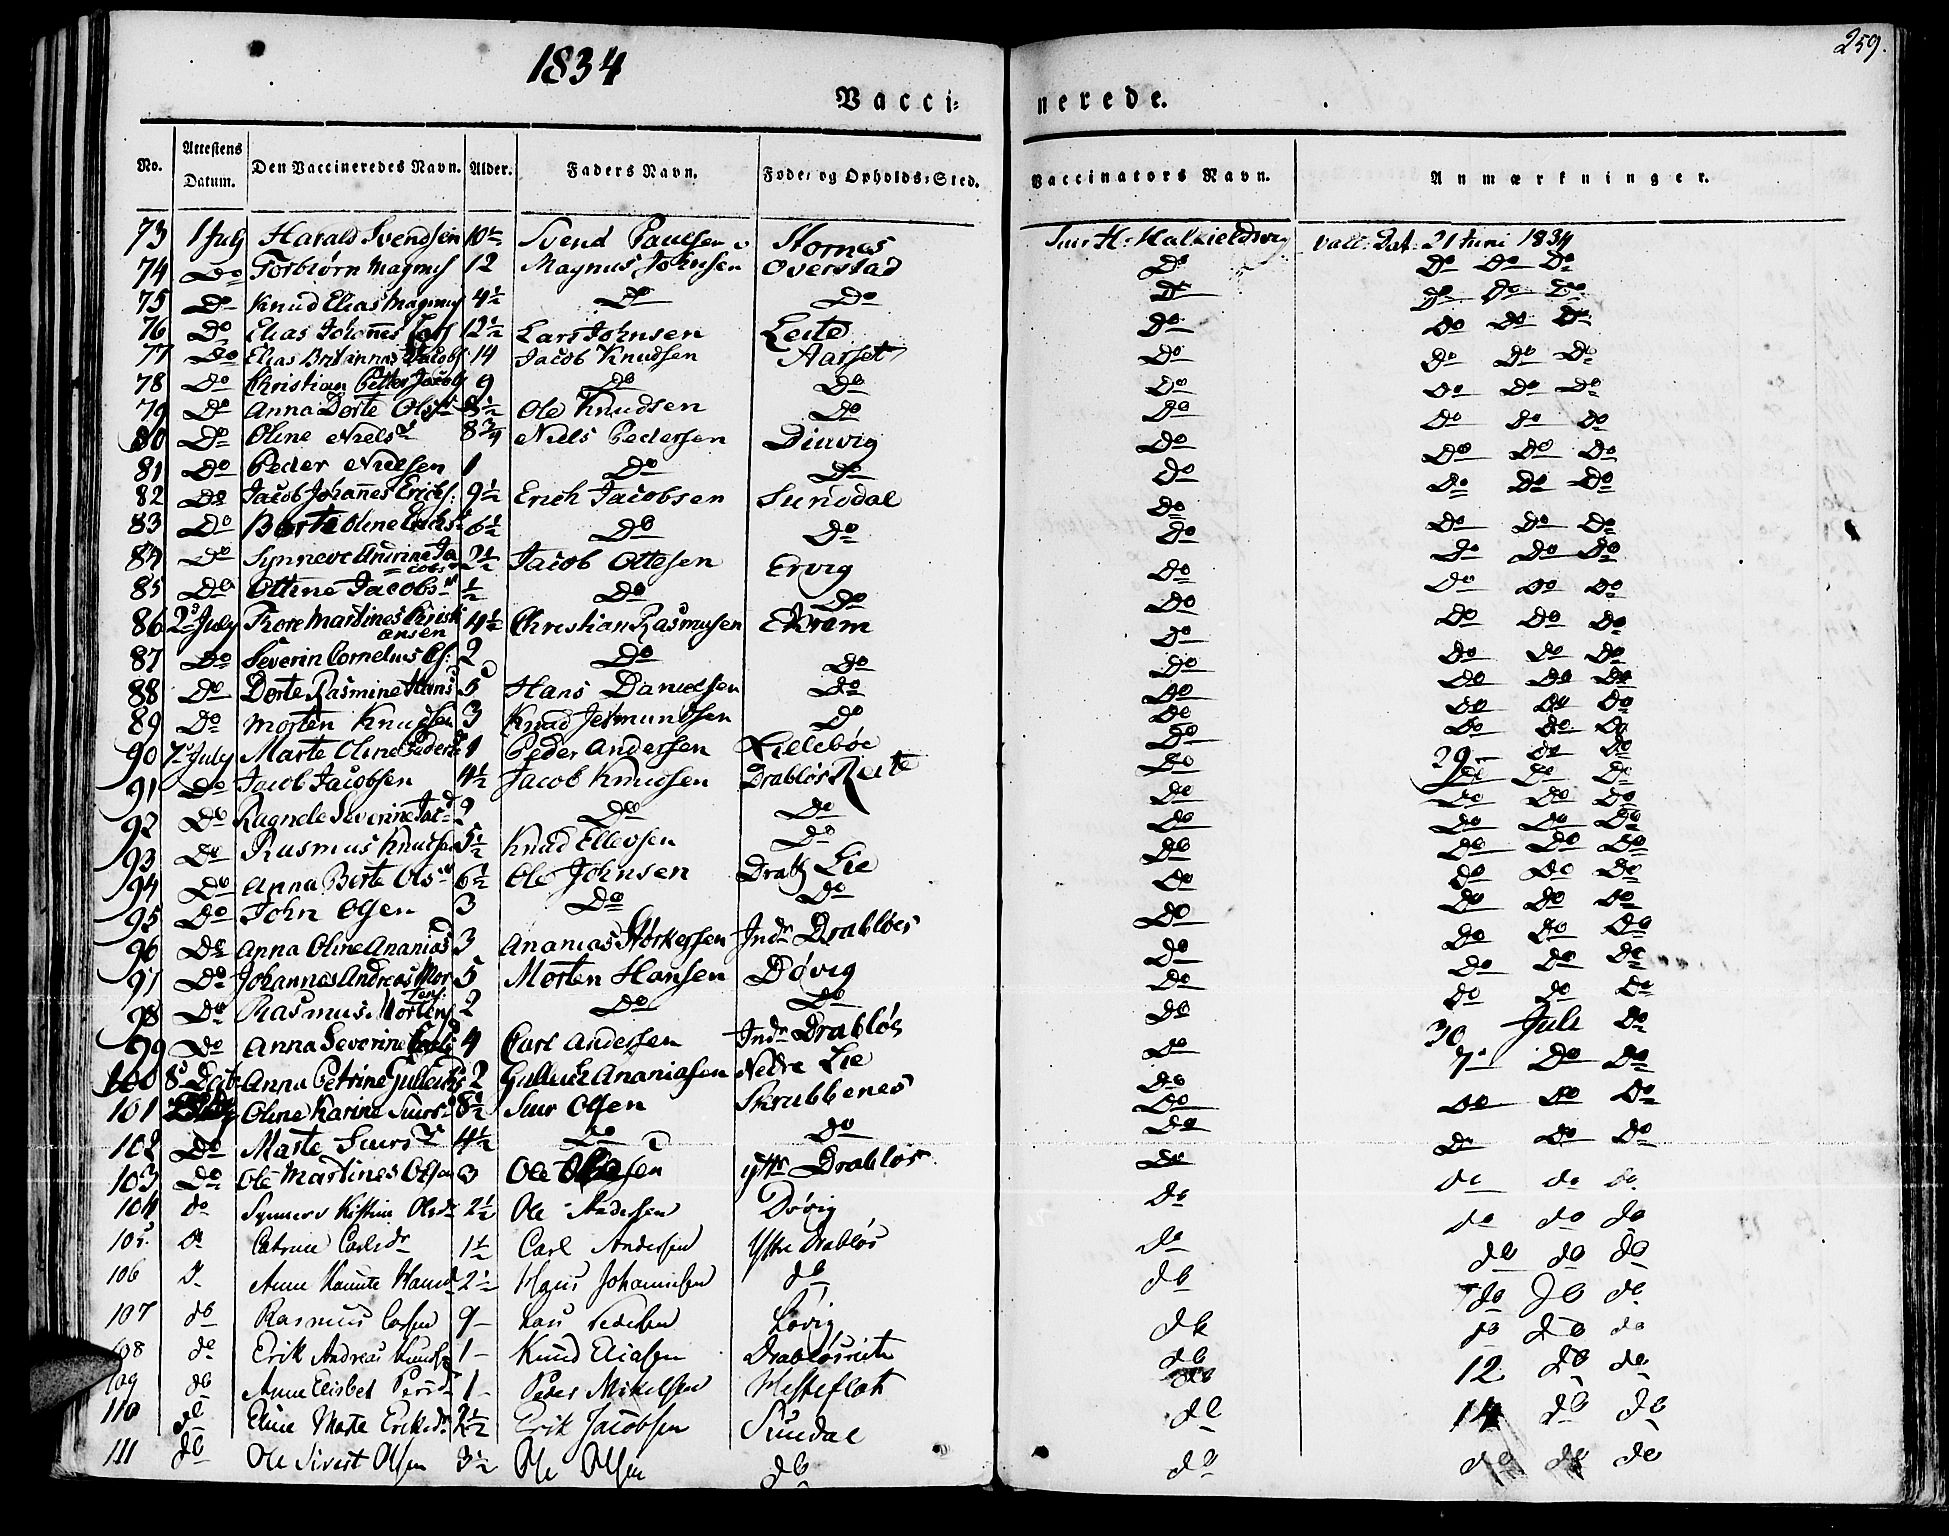 259.
1834
Vacci=
nerede.
No. Attestens Datum. Den Vaccineredes Navn. Alder. Faders Navn. Føde= og Opholds=Sted. Vaccinators Navn. Anmærkninger.
73 1 July Harald Svendsen 10½ Svend Paulsen Stornes Siur H: Vacc: Dat: 21 Juni 1834
74 Do Torbiørn Magnus 12 Magnus Johnsen Overstad Do Do Do Do
75 Do Knud Elias Magnus 4½ Do Do Do Do Do Do
76 Do Elias Johannes Lars 12½ Lars Johnsen Leite Do Do Do Do
77 Do Elias Jacobs: 14 Jacob Knudsen Aarset Do Do Do Do
78 Do Christian Petter Jacobs 9 Do Do Do Do Do Do
79 Do Anna Dorte Olsd 8½ Ole Knudsen Do Do Do Do Do
80 Do Oline Nielsd 8¾ Niels Pedersen Dimvig Do Do Do Do
81 Do Peder Nielsen 1 Do Do Do Do Do Do
82 Do Jacob Johannes Erichs: 9½ Erich Jacobsen Sundal Do Do Do Do
83 Do Berte Oline Erichsd 6½ Do Do Do Do Do Do
84 Do Synneve Andrine Jacobsd 2½ Jacob Ottesen Ervig Do Do Do Do
85 Do Ottine Jacobsd ½ Do Do Do Do Do Do
86 2d July Thore Martines Christiansen 4½ Christian Rasmusen Ekrem Do Do Do Do
87 Do Severin Cornelius Cs: 2 Do Do Do Do Do Do
88 Do Dorte Rasmine Hansd 5 Hans Danielsen Do Do Do Do Do
89 Do Morten Knudsen 3 Knud Jetmundsen Do Do Do Do Do
90 7d July Marte Oline Pedersd 1 Peder Andersen Lillebøe Do 29 Do Do
91 Do Jacob Jacobsen 4½ Jacob Knudsen Drabløs Reite Do Do Do Do
92 Do Ragnele Severine Jacd 2 Do Do Do Do Do Do
93 Do Rasmus Knudsen 5½ Knud Ellevsen Do Do Do Do Do
94 Do Anna Berte Olsd 6½ Ole Johnsen Drabl Lie Do Do Do Do
95 Do John Olsen 3 Do Do Do Do Do Do
96 Do Anna Oline Ananiasd 3 Ananias Størkersen Indr Drabløes Do Do Do Do
97 Do Johannes Andreas Mortens: 5 Morten Hansen Døvig Do Do Do Do
98 Do Rasmus Mortens 2 Do Do Do Do Do Do
99 Do Anna Severine Carlsd 4 Carl Andersen Indr Drabløs Do 30 Juli Do
100 8d Do Anna Petrine Gullachsd 2 Gullach Ananiasen Nedre Lie Do 7d Do Do
101 Oline Karine Siursd 8½ Siur Olsen Skrubbenes Do Do Do Do
102 Do Marte Siursd 4½ Do Do Do Do Do Do
103 Do Ole Martines Olsen 3 Ole Olesen Yttr Drabløs Do Do Do Do
104 do Synnev Kistine Olsdr 2½ Ole Andersen Døvig do do do do
105. do Catrine Carlsdr 1½ Carl Andersen Yttre Drabløs do do do do
106 do Anne Hansd 2½ Hans Johannesen do do do do do
107 do Rasmus Larsen 9 Lars Pedersen Løvig do do do do
108 do Erik Andreas Knudsen 1 Knud Eliasen Drabløsreite do 12 do do
109 do Anne Elisbet Pedersd 1 Peder Mikelsen Hesteflot do
110 do Eline Marte Eriksd. 2½ Erik Jacobsen Sundal do 14 do do
111 do Ole Sivert Olsen 3½ Ole Olsen do do do do do